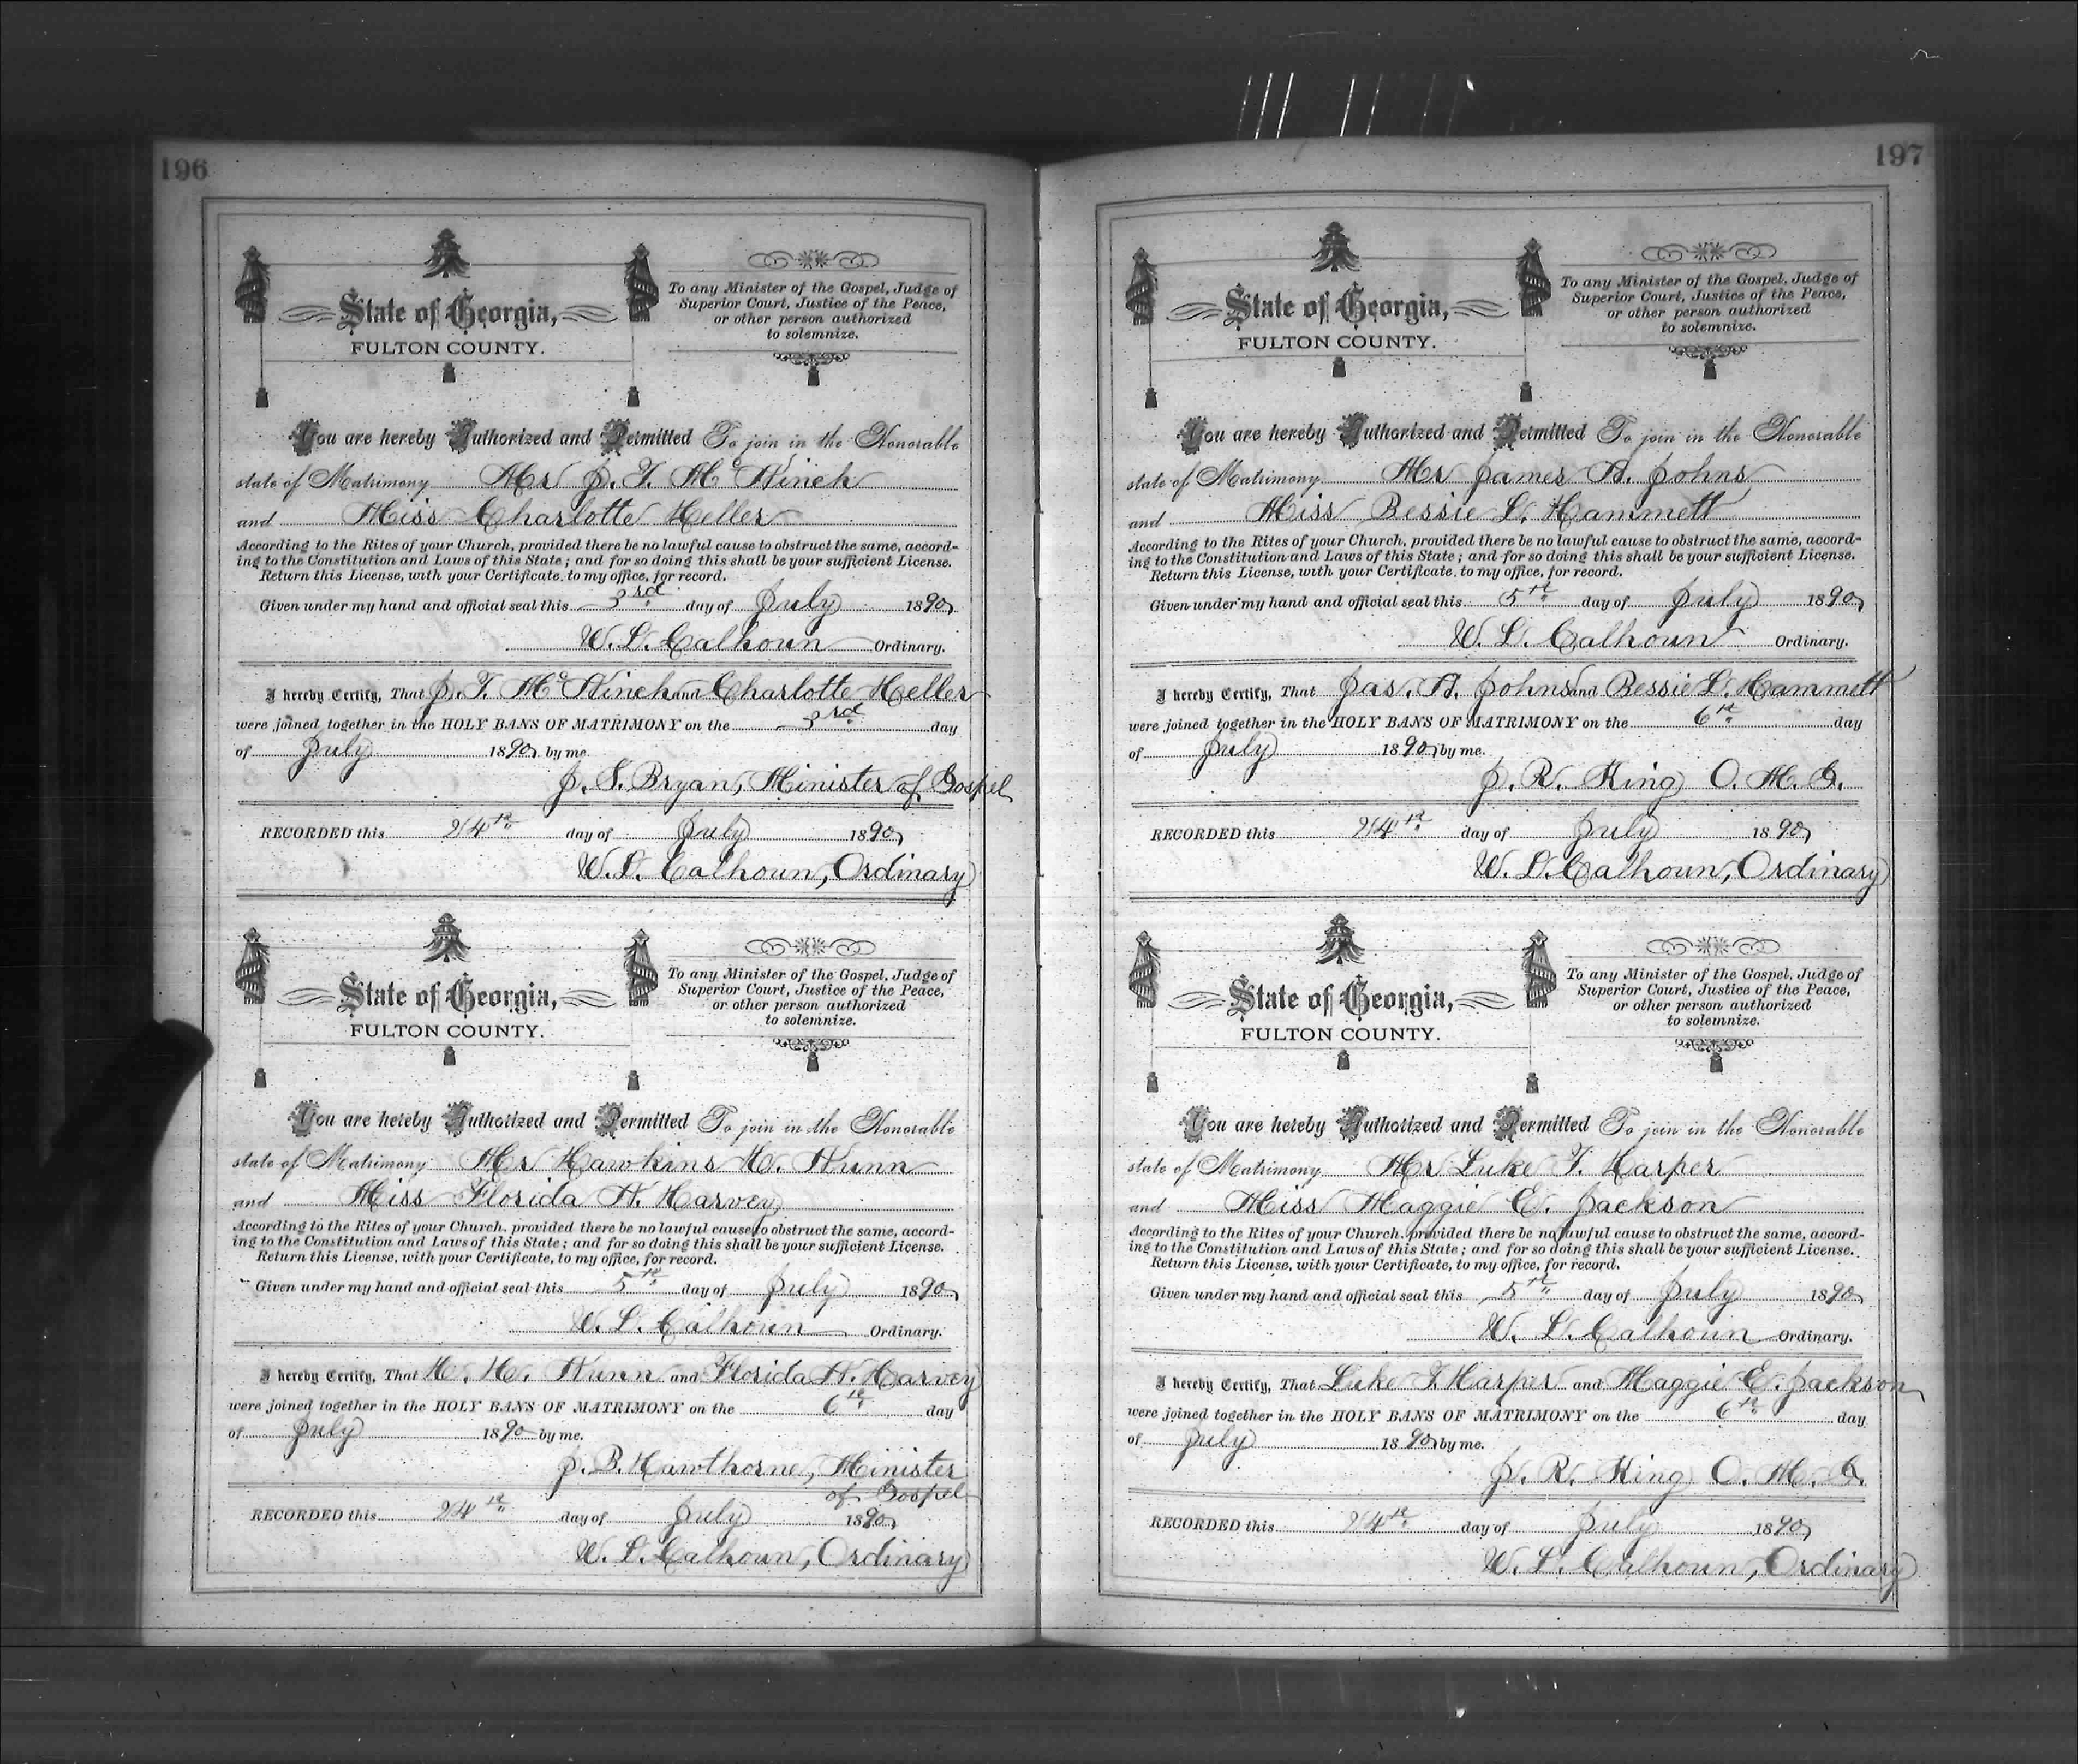 196
State of Georgia,
FULTON COUNTY.
To any Minister of the Gospel, Judge of
Superior Court, Justice of the Peace,
or other person authorized
to solemnize.
You are hereby Authorized and Permitted To join in the Honorable
state of Matrimony Mr J. T. McKinch
and Miss Charlotte Heller
According to the Rites of your Church, provided there be no lawful cause to obstruct the same, accord-
ing to the Constitution and Laws of this State; and for so doing this shall be your sufficient License.
Return this License, with your Certificate, to my office, for record.
Given under my hand and official seal this 3rd day of July 1890
W. L. Calhoun Ordinary.
I hereby Certify, That J. T. McKinch and Charlotte Heller
were joined together in the HOLY BANS OF MATRIMONY on the 3rd day
of July 1890 by me.
J. S. Bryan, Minister of Gospel
RECORDED this 24th day of July 1890
W. L. Calhoun, Ordinary
State of Georgia,
FULTON COUNTY.
To any Minister of the Gospel, Judge of
Superior Court, Justice of the Peace,
or other person authorized
to solemnize.
You are hereby Authorized and Permitted To join in the Honorable
state of Matrimony Mr Hawkins H. Nunn
and Miss Florida N. Harvey
According to the Rites of your Church, provided there be no lawful cause to obstruct the same, accord-
ing to the Constitution and Laws of this State; and for so doing this shall be your sufficient License.
Return this License, with your Certificate, to my office, for record.
Given under my hand and official seal this 5th day of July 1890
W. L. Calhoun Ordinary.
I hereby Certify, That H. H. Nunn and Florida N. Harvey
were joined together in the HOLY BANS OF MATRIMONY on the 6th day
of July 1890 by me.
J. B. Hawthorne, Minister
of Gospel
RECORDED this 24th day of July 1890
W. L. Calhoun, Ordinary
197
State of Georgia,
FULTON COUNTY.
To any Minister of the Gospel, Judge of
Superior Court, Justice of the Peace,
or other person authorized
to solemnize.
You are hereby Authorized and Permitted To join in the Honorable
state of Matrimony Mr James A. Johns
and Miss Bessie L. Hammett
According to the Rites of your Church, provided there be no lawful cause to obstruct the same, accord-
ing to the Constitution and Laws of this State; and for so doing this shall be your sufficient License.
Return this License, with your Certificate, to my office, for record.
Given under my hand and official seal this 5th day of July 1890
W. L. Calhoun Ordinary.
I hereby Certify, That Jas. A. Johns and Bessie L. Hammett
were joined together in the HOLY BANS OF MATRIMONY on the 6th day
of July 1890 by me.
J. R. King O. M. G.
RECORDED this 24th day of July 1890
W. L. Calhoun, Ordinary
State of Georgia,
FULTON COUNTY.
To any Minister of the Gospel, Judge of
Superior Court, Justice of the Peace,
or other person authorized
to solemnize.
You are hereby Authorized and Permitted To join in the Honorable
state of Matrimony Mr Luke T. Harper
and Miss Maggie E. Jackson
According to the Rites of your Church, provided there be no lawful cause to obstruct the same, accord-
ing to the Constitution and Laws of this State; and for so doing this shall be your sufficient License.
Return this License, with your Certificate, to my office, for record.
Given under my hand and official seal this 5th day of July 1890
W. L. Calhoun Ordinary.
I hereby Certify, That Luke T. Harper and Maggie E. Jackson
were joined together in the HOLY BANS OF MATRIMONY on the 6th day
of July 1890 by me.
J. R. King O. M. G.
RECORDED this 24th day of July 1890
W. L. Calhoun, Ordinary